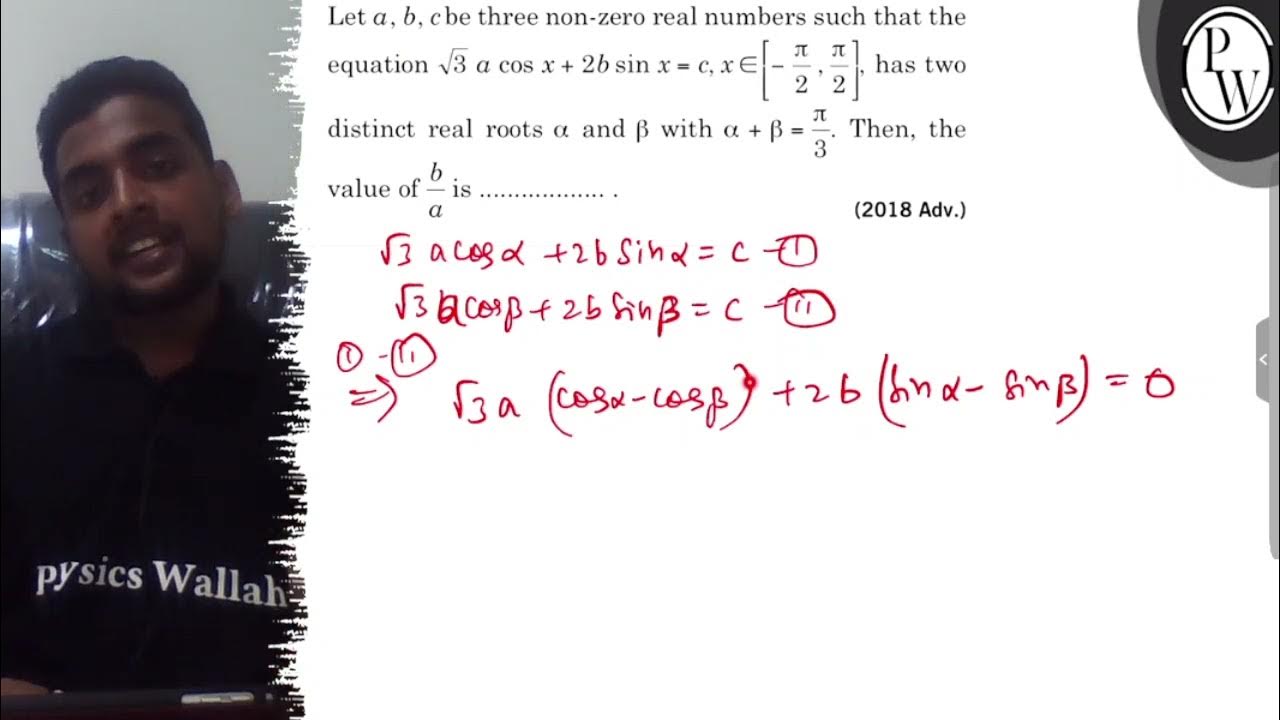 Let a, b, c be three non-zero real numbers such that the
equation √3 a cos x + 2b sin x = c, x ∈ [-π/2, π/2], has two
distinct real roots α and β with α + β = π/3. Then, the
value of b/a is .................. .
(2018 Adv.)
√3 a cosα + 2b sinα = c -①
√3 a cosβ + 2b sinβ = c -⑪
① - ⑪
⇒ √3 a (cosα - cosβ) + 2b (sinα - sinβ) = 0
PW
pysics Wallah